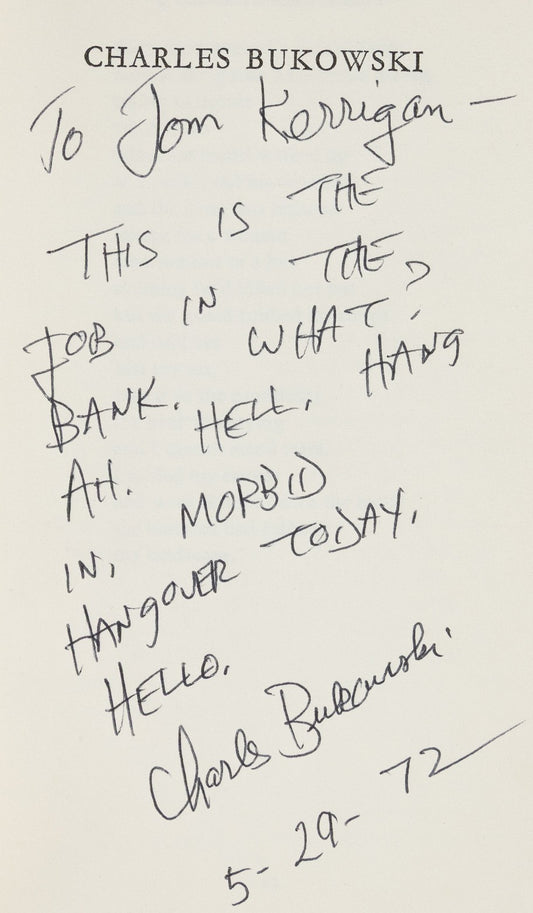 CHARLES BUKOWSKI
To Tom Kerrigan —
THIS IS THE
JOB IN THE
BANK. WHAT?
AH. HELL. HANG
IN, MORBID
HANGOVER TODAY.
HELLO.
Charles Bukowski
5-29-72